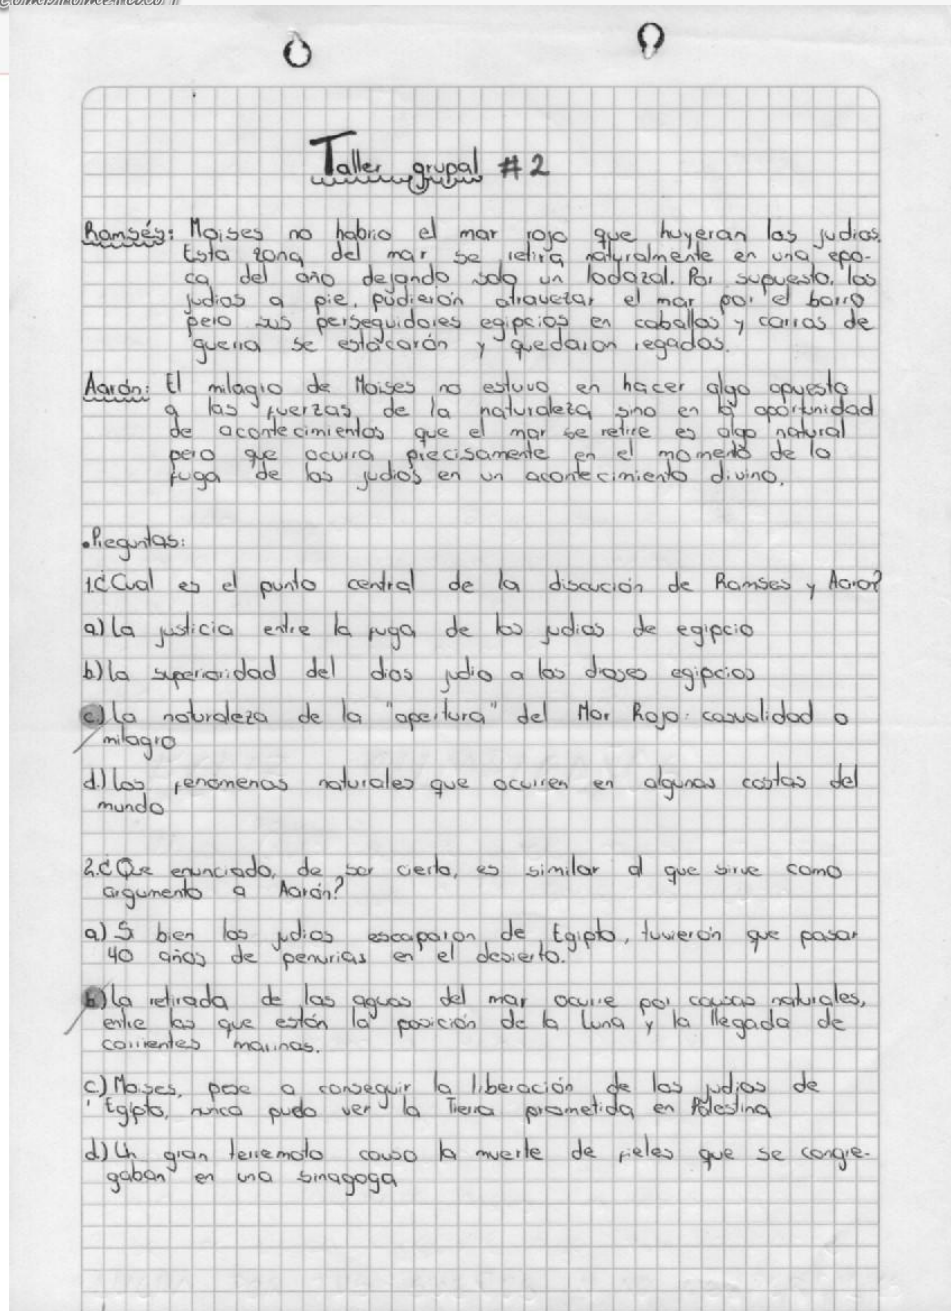 Taller grupal #2
Ramsés: Moises no habrio el mar rojo que huyeran los judios.
Esta zona del mar se retira naturalmente en una epo-
ca del año dejando solo un lodazal. Por supuesto, los
judios a pie, pudierón atravezar el mar por el barro
pero sus perseguidores egipcios en caballos y carros de
guerra se estacarón y quedaron regados.
Aarón: El milagro de Moises no estuvo en hacer algo opuesto
a las fuerzas de la naturaleza sino en la oportunidad
de acontecimientos que el mar se retire es algo natural
pero que ocurra precisamente en el momento de la
fuga de los judios en un acontecimiento divino.
•Preguntas:
1.¿Cual es el punto central de la discución de Ramses y Aaro?
a) la justicia entre la fuga de los judios de egipcio
b) la superioridad del dios judio a los dioses egipcios
c) la naturaleza de la "apertura" del Mar Rojo: casualidad o
milagro
d.) los fenomenos naturales que ocurren en algunas costas del
mundo
2.¿Que enunciado, de ser cierto, es similar al que sirve como
argumento a Aarón?
a) Si bien los judios escaparon de Egipto, tuvierón que pasar
40 años de penurias en el desierto.
b) la retirada de las aguas del mar ocurre por causas naturales,
entre las que están la posición de la luna y la llegada de
corrientes marinas.
c) Moises, pese a conseguir la liberación de los judios de
Egipto, nunca pudo ver la Tierra prometida en Palestina
d) Un gran terremoto causo la muerte de fieles que se congre-
gaban en una sinagoga